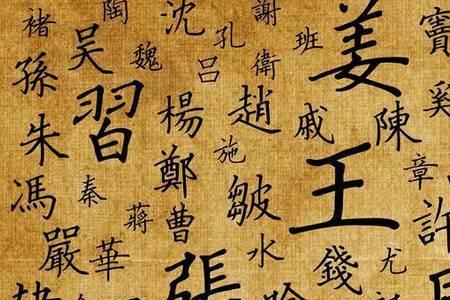 褚
陶
沈
謝
姜
竇
吳
魏
孔
班
孫
呂
衛
習
楊
趙
戚
陳
朱
施
馮
秦
鄭
皺
王
章
蔣
曹
許
嚴
華
水
錢
尤
張